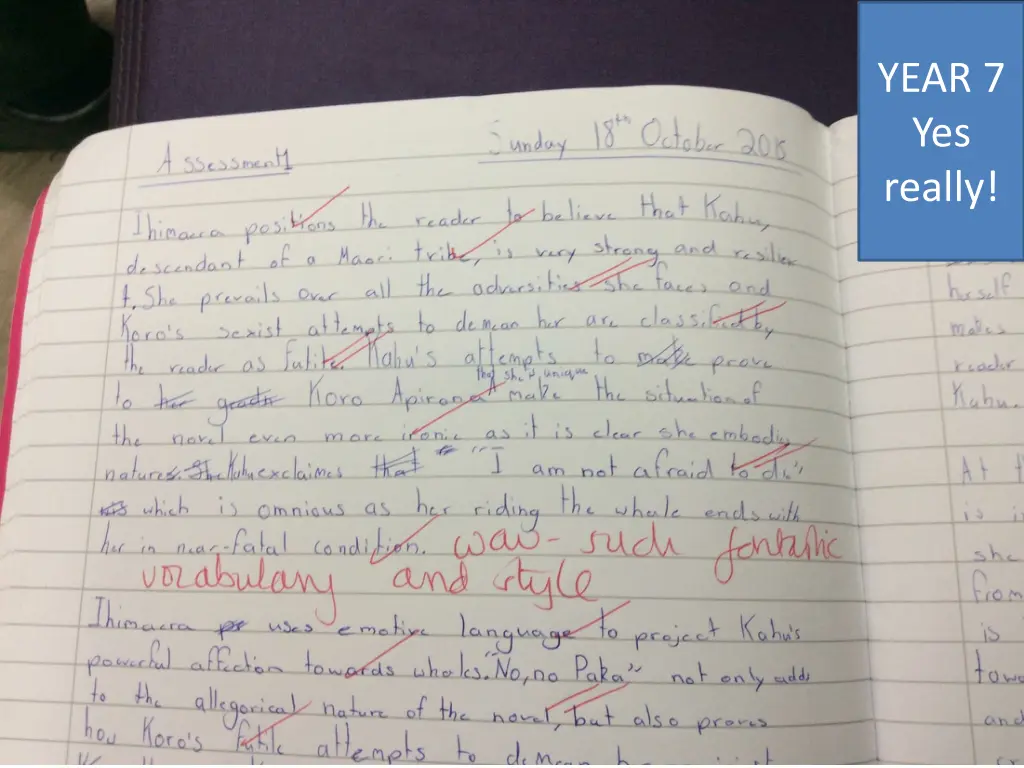 YEAR 7
Yes
really!
Assessment 1
Sunday 18th October 2015
Ihimaera positions the reader to believe that Kahu,
descendant of a Maori tribe, is very strong and resilien
t. She prevails over all the adversities she faces and
Koro's sexist attempts to demean her are classified by
the reader as futile. Kahu's attempts to prove
that she is unique
to Koro Apirana make the situation of
the novel even more ironic as it is clear she embodies
nature. Kahu exclaimes "I am not afraid to die"
which is omnious as her riding the whale ends with
her in near-fatal condition. wow - such fantastic
vocabulary and style
Ihimaera uses emotive language to project Kahu's
powerful affection towards whales. "No, no Paka" not only adds
to the allegorical nature of the novel, but also proves
how Koro's futile attempts to demean
herself
makes
reader
Kahu.
At
is
she
from
is
towa
and